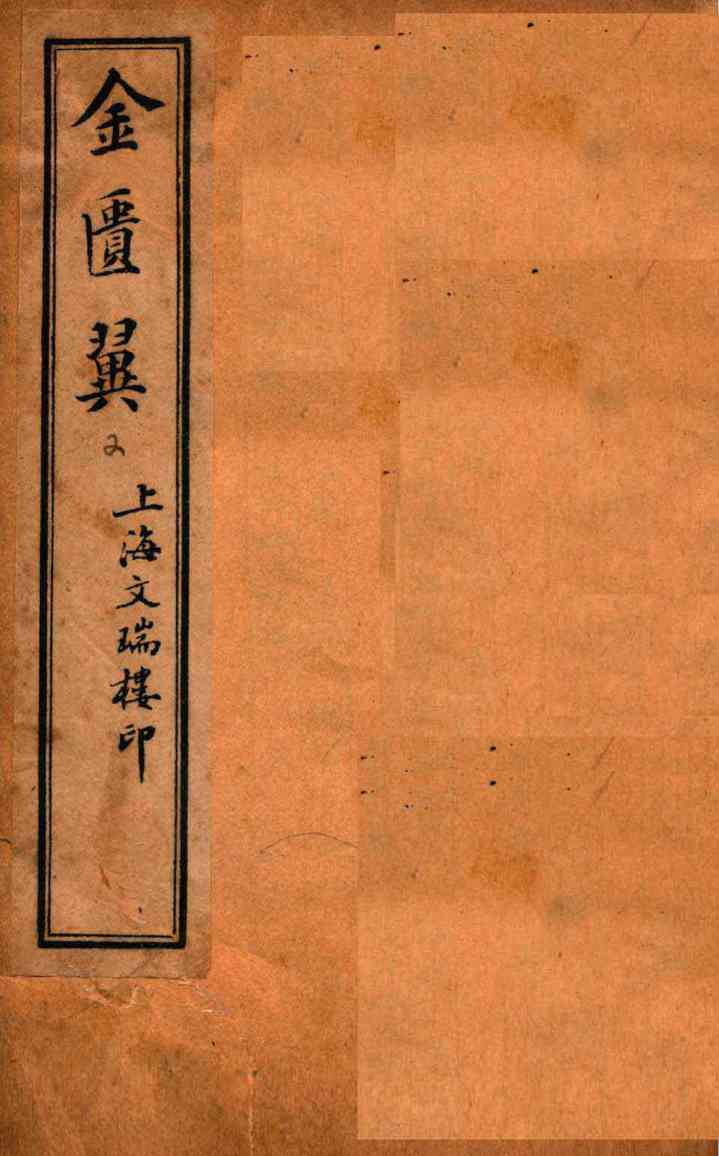 金匱翼
2
上海文瑞樓印